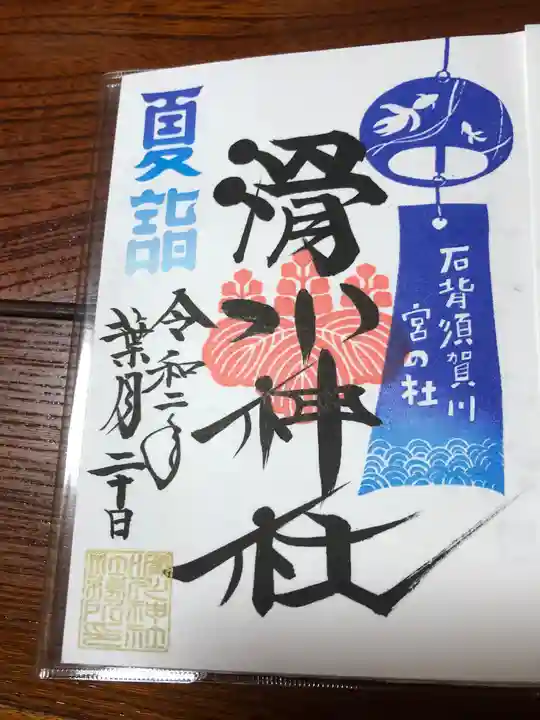 石背須賀川
宮の杜
滑川神社
夏詣
令和二年
葉月二十日